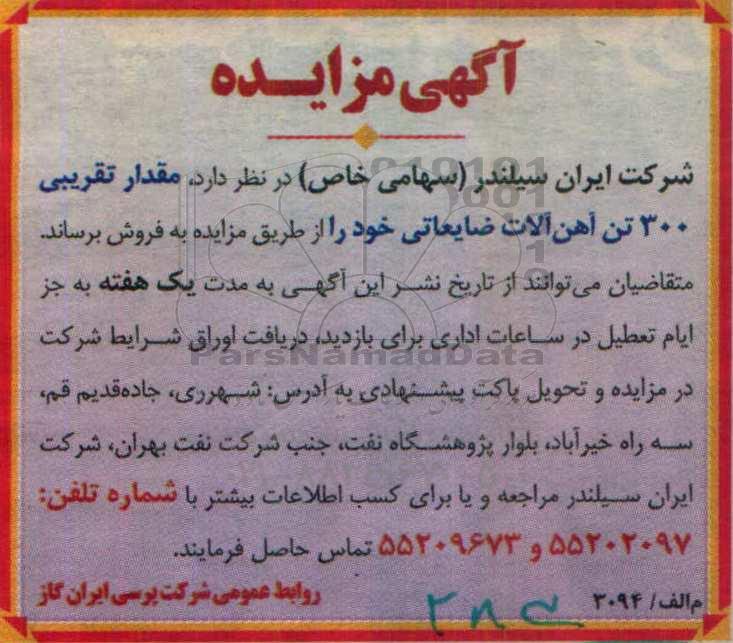 آگهی مزایده
شرکت ایران سیلندر (سهامی خاص) در نظر دارد، مقدار تقریبی
۳۰۰ تن آهن‌آلات ضایعاتی خود را از طریق مزایده به فروش برساند.
متقاضیان می‌توانند از تاریخ نشر این آگهی به مدت یک هفته به جز
ایام تعطیل در ساعات اداری برای بازدید، دریافت اوراق شرایط شرکت
ParsNamadData
در مزایده و تحویل پاکت پیشنهادی به آدرس: شهرری، جاده‌قدیم قم،
سه راه خیرآباد، بلوار پژوهشگاه نفت، جنب شرکت نفت بهران، شرکت
ایران سیلندر مراجعه و یا برای کسب اطلاعات بیشتر با شماره تلفن:
۵۵۲۰۲۰۹۷ و ۵۵۲۰۹۶۷۳ تماس حاصل فرمایند.
م‌الف/ ۳۰۹۴
روابط عمومی شرکت پرسی ایران گاز